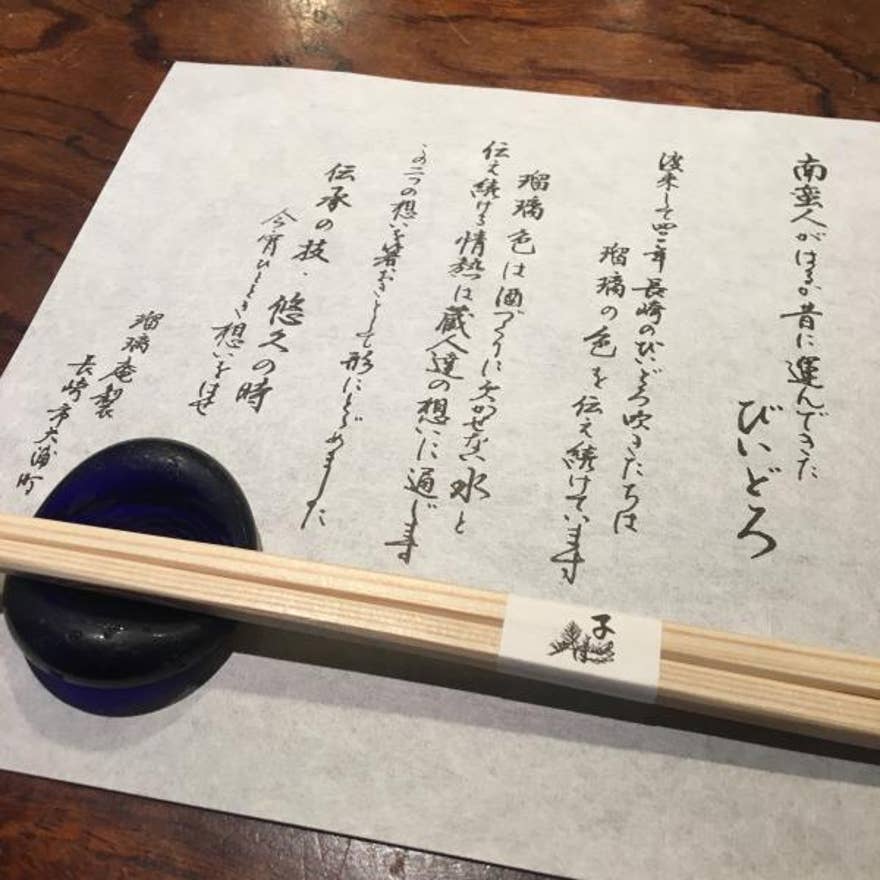 南蛮人がはるか昔に運んできた
びいどろ
渡来して四二年長崎のびいどろ吹きたちは
瑠璃の色を伝え続けています
瑠璃色は酒づくりに欠かせない水と
伝え続ける情熱は蔵人達の想いに通じます
この二つの想いを箸おきとして形にとどめました
伝承の技・悠久の時
今宵ひととき想いをはせ
瑠璃庵製
長崎市大浦町
子